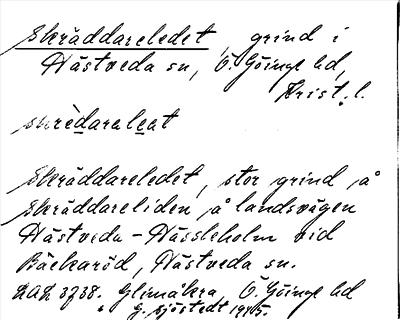 Skräddareledet, grind i
Hästveda sn, Ö. Göinge hd,
Krist. l.
Skräddareledet, stor grind på
Skräddareliden på landsvägen
Hästveda - Hässleholm vid
Bäckaröd, Hästveda sn.
LAL 3738. Glimåkra, Ö. Göinge hd
G. Sjöstedt 1935.